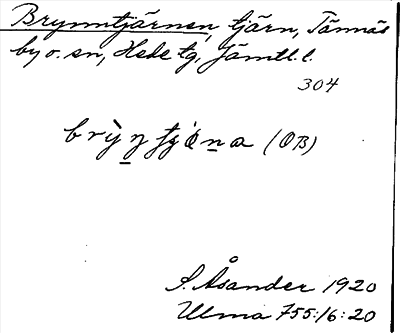 Brynntjärnen, tjärn, Tännäs
by o. sn, Hede tg, Jämtl. l.
304
(OB)
S. Åsander 1920
Ulma 755:16:20